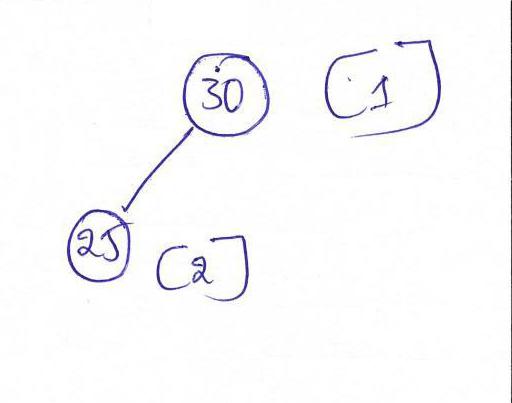 30 [1]
25 [2]